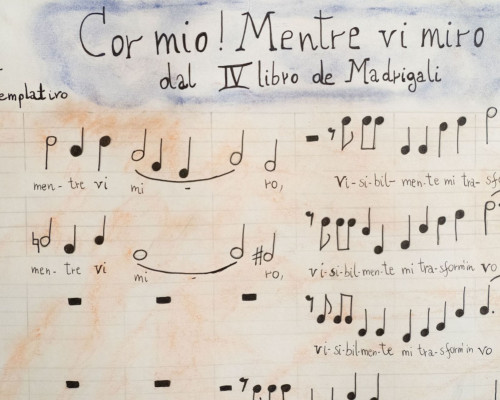 Cor mio! Mentre vi miro
dal IV libro de Madrigali
emplativo
men- tre vi mi - ro, vi- si-bil- men-te mi tra- sfo
men- tre vi mi ro, vi-si-bil-men-te mi tra-sform'in vo
vi-si-bil-men-te mi tra-sform'in vo